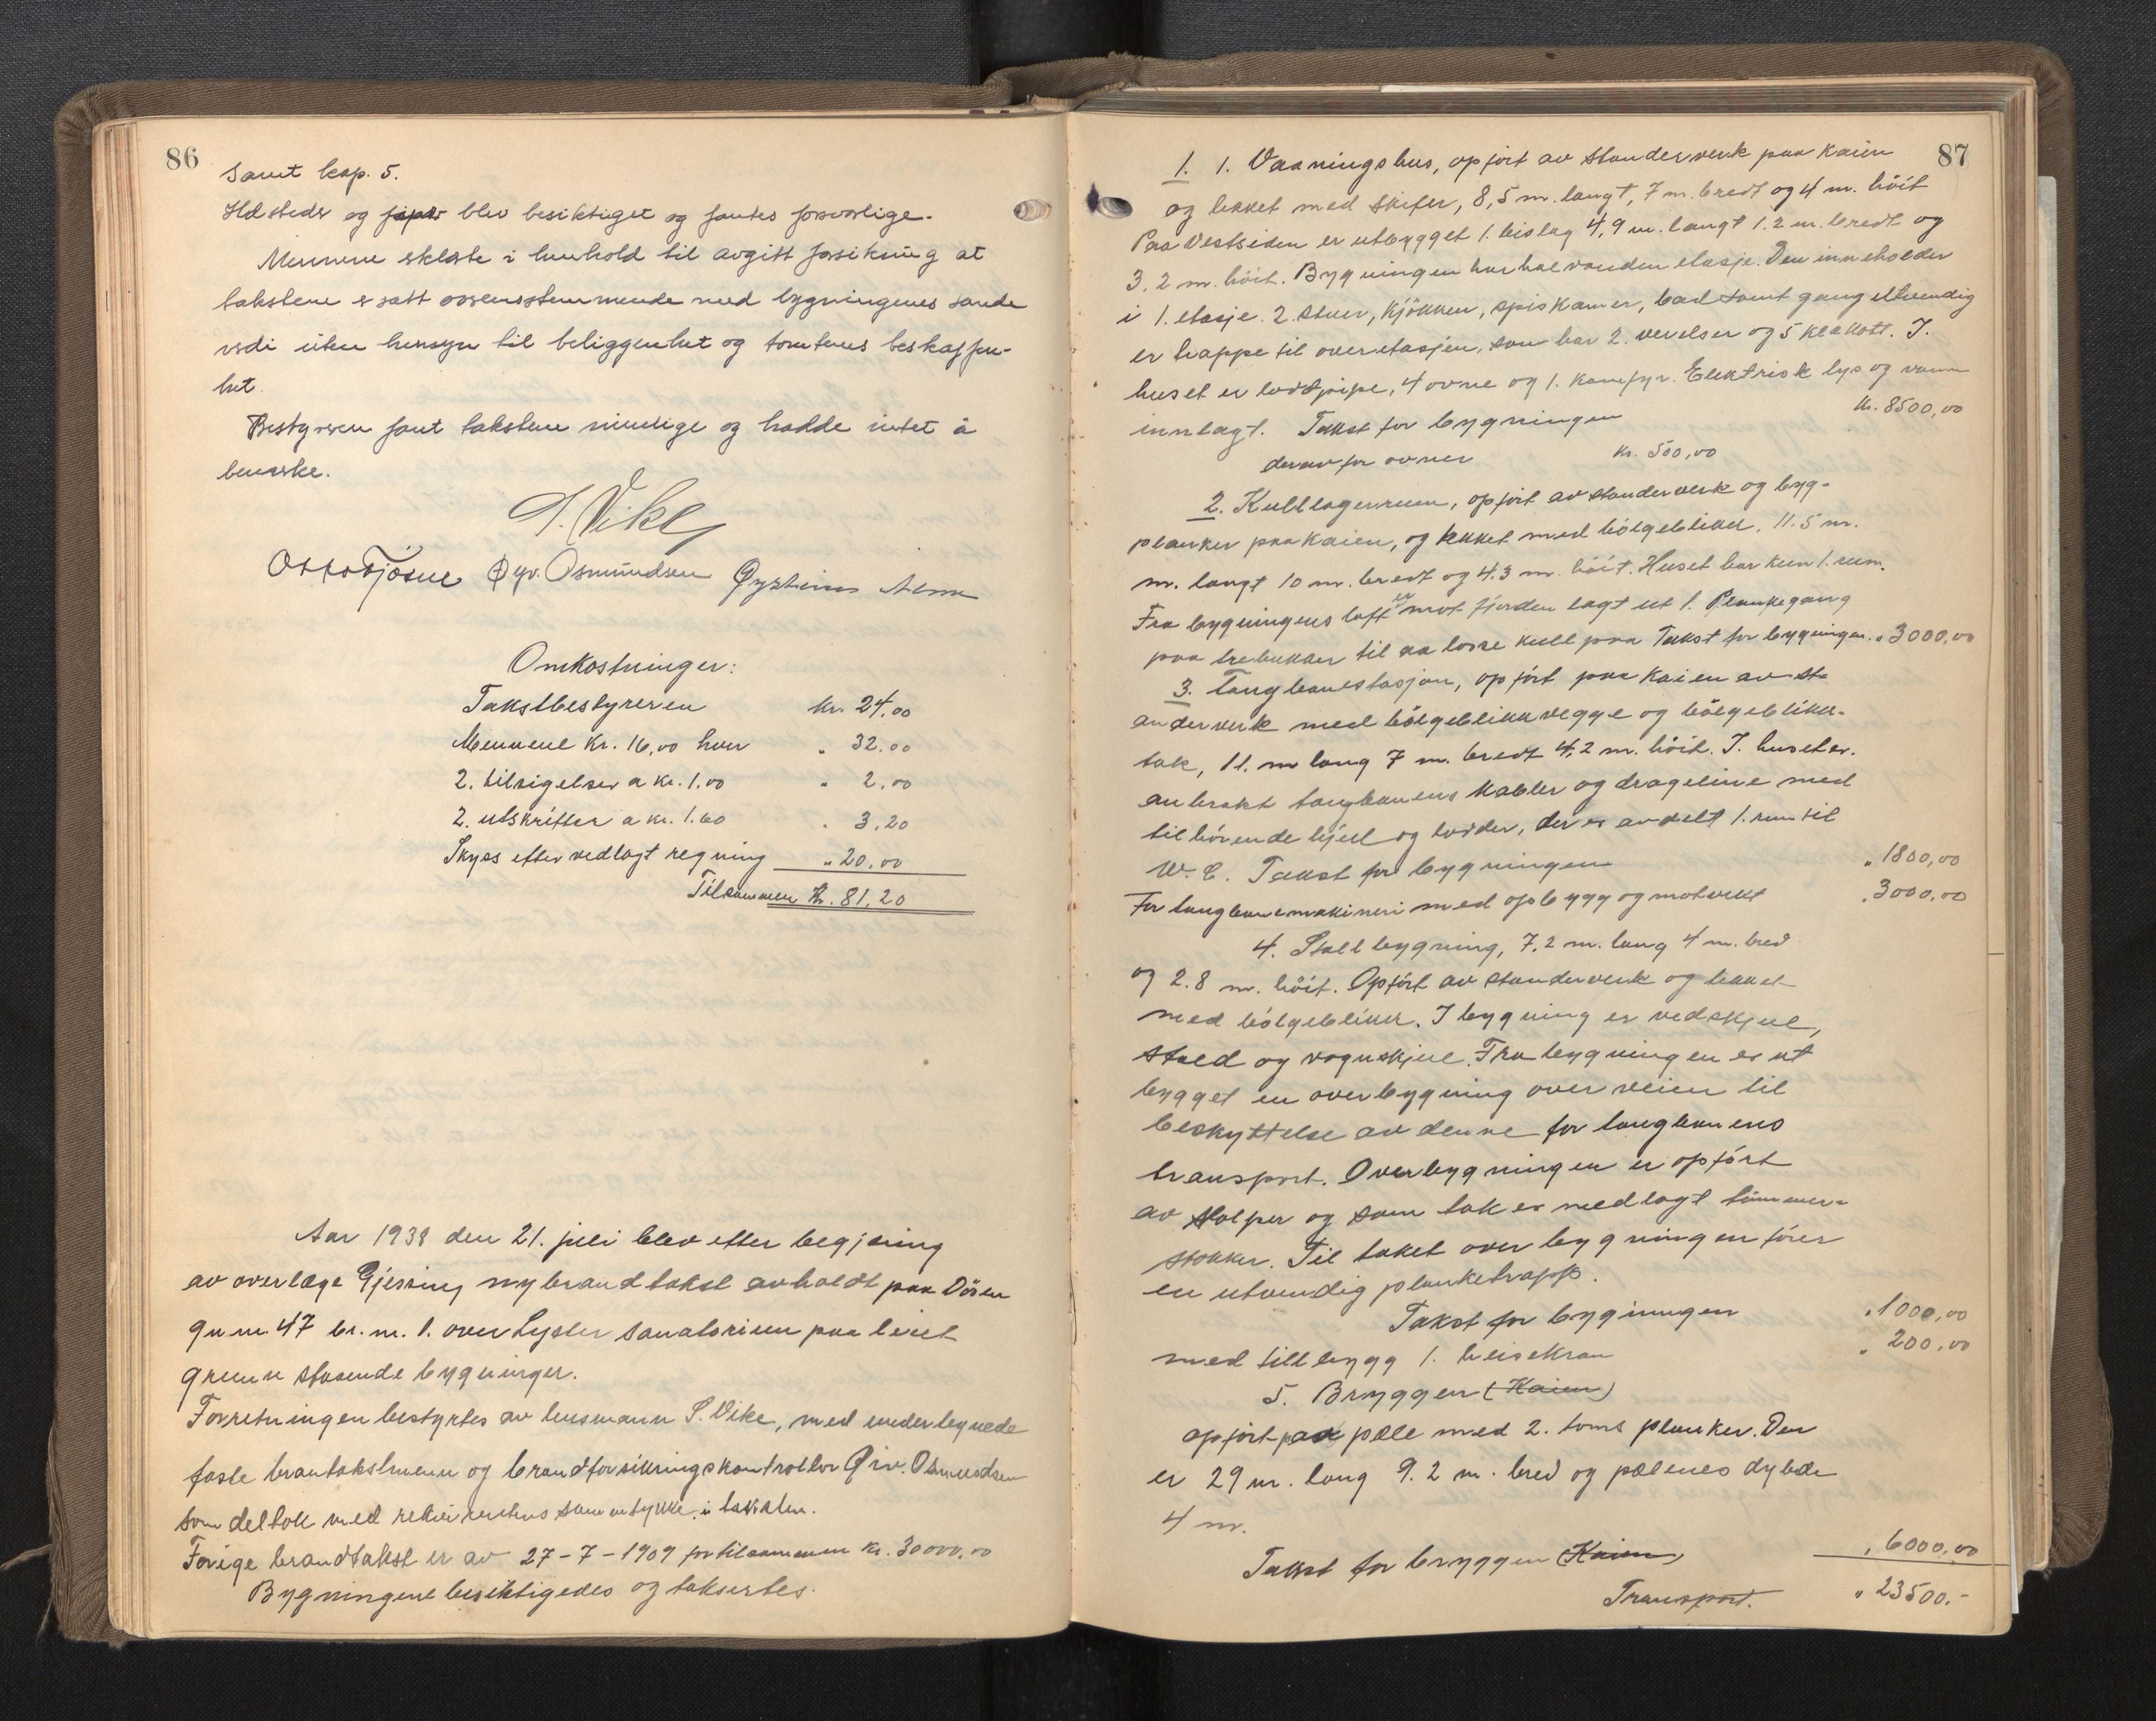 86
samt kap. 5.
Ildsteder og piper blev besiktiget og fantes forsvarlige.
Mennene erklærte i henhold til avgitt forsikring at
takstene er satt overensstemmende med bygningenes sande
verdi uten hensyn til beliggenhet og tomtens beskaffen-
het.
Bestyreren fant takstene rimelige og hadde intet å
bemerke.
S. Vike
Otto Tjösne Gjv. Osmundsen Øystein
Omkostninger:
Takstbestyreren kr. 24,00
Mennene kr. 16,00 hver " 32.00
2. tilsigelser a kr. 1.00 " 2,00
2. utskrifter a kr. 1.60 " 3,20
Skyss efter vedlagt regning " 20,00
Tilsammen kr. 81,20
Aar 1938 den 21. juli blev efter begjæring
av overlæge Gjessing ny brandtakst avholdt paa Dösen
gn.nr. 47 br.nr. 1. over Lyster sanatorium paa leiet
grunn staaende bygninger.
Forretningen bestyrtes av lensmann S. Vike, med undertegnede
faste brantakstmenn og brandforsikringskontrollør Gjv. Osmundsen
som deltok med rekvirentens samentykke i taksten.
Forige brandtakst er av 27-7-1909 for tilsammen kr. 30000,00
Bygningene besiktigedes og taksertes.
87
1. 1. Vaaningshus, opfört av standerverk paa Kaien
og tekket med skifer, 8,5 m. langt, 7 m. bredt og 4 m. höit
Paa Vestsiden er utbygget 1. bislag 4,9 m. langt 1.2 m. bredt og
3,2 m. höit. Bygningen har halvanden etasje. Den inneholder
i 1. etasje. 2. stuer, kjökken, spiskamer, bad samt gang utvendig
er trappe til overetasjen, som har 2. verelser og 5 klekott. I.
huset er teglpipe, 4 ovne og 1. komfyr. Elektrisk lys og vann
innlagt. Takst for bygningen kr. 8500,00
derav for ovner kr. 500,00
2. Kulllagerrum, opfört av standerverk og byg-
planker paa kaien, og tekket med bölgeblikk, 11.5 m.
m. langt 10 m. bredt og 4.3 m. höit. Huset har kun 1. rum.
Fra bygningens loft er mot fjorden lagt ut 1. Plankegang
paa trebukker til aa losse kull paa Takst for bygningen " 3000,00
3. Taugbanestasjon, opfört paa Kaien av st-
anderverk med bölgeblikkvegge og bölgeblikk-
tak, 11. m lang 7 m. bredt 4,2 m. höit. I. huset er.
anbrakt taugbanens kabler og drageline med
tilhörende hjul og lodder, der er avdelt 1. rum til
W.C. Takst for bygningen " 1800,00
For taugbanemaskineri med opbygg og motvekt " 3000,00
4. Stallbygning, 7,2 m. lang 4 m. bred
og 2.8 m. höit. Opfört av standerverk og tekket
med bölgeblikk. I bygning er vedskjul,
stald og vognskjul. Fra bygningen er ut
bygget en overbygning over veien til
beskyttelse av denne for taugbanens
transport. Overbygningen er opfört
av stolper og som tak er nedlagt tömmer-
stokker. Til taket over bygningen förer
en utvendig planketrapp.
Takst for bygningen " 1000,00
med tillbygg 1. heisekran " 200,00
5. Bryggen (Kaien)
opfört paa pæle med 2. toms planker. Den
er 29 m. lang 9.2 m. bred og pælenes dybde
4 m.
Takst for bryggen (Kaien) " 6000,00
Transport. " 23500.-